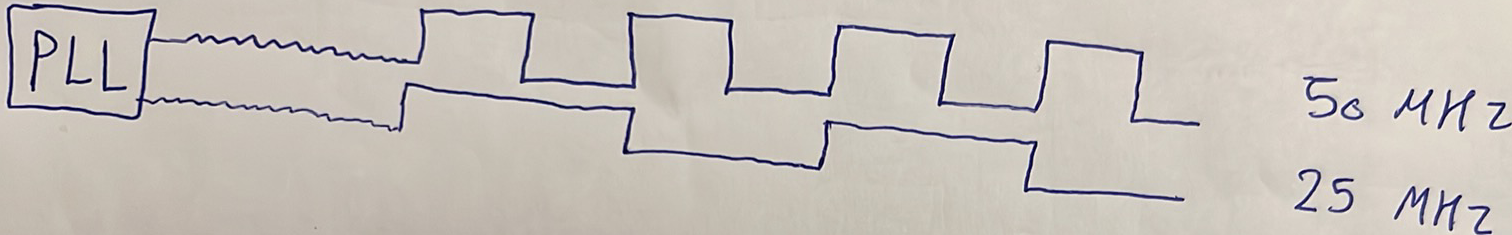 PLL
50 MHz
25 MHz